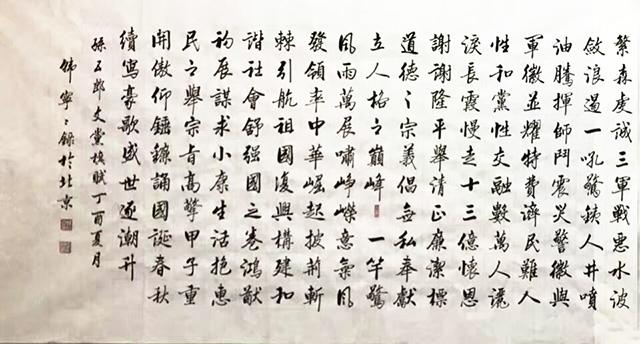 繁森虔誠三軍戰惡水波
斂浪遏一吼驚銕人井噴
油騰揮師鬥震災警徽與
軍徽並耀特費濟民難人
性和黨性交融數萬人灑
淚長霞慢走十三億懷恩
謝謝隆平舉清正廉潔標
道德之宗義倡無私奉獻
立人格之巔峰一竿驚
風雨萬展嘯崢嶸意氣風
發領率中華崛起披荊斬
棘引航祖國復興構建和
諧社會舒強國之卷鴻猷
初展謀求小康生活抱惠
民之舉宗旨高擎甲子重
開傲仰錘鐮誦國誕春秋
續寫豪歌盛世逐潮升
孫五郎文黨旗賦丁酉夏月
寧〻錄於北京